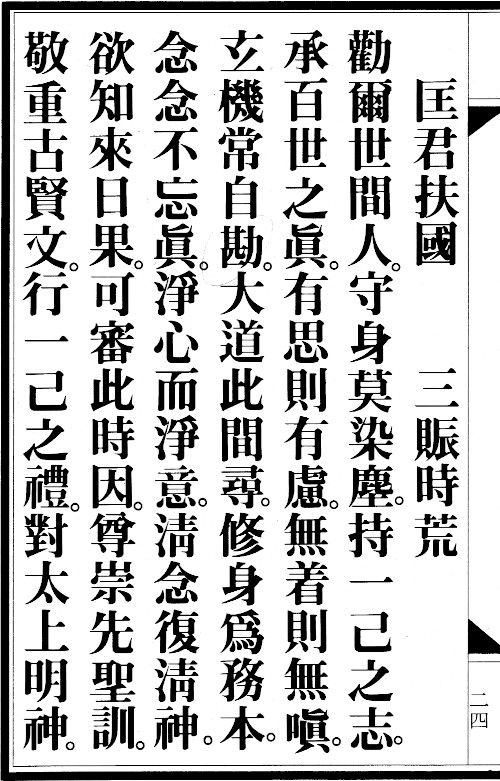 匡君扶國　三賑時荒
勸爾世間人。守身莫染塵。持一己之志。
承百世之眞。有思則有慮。無着則無嗔。
玄機常自勘。大道此間尋。修身爲務本。
念念不忘眞。淨心而淨意。淸念復淸神。
欲知來日果。可審此時因。尊崇先聖訓。
敬重古賢文。行一己之禮。對太上明神。
二四